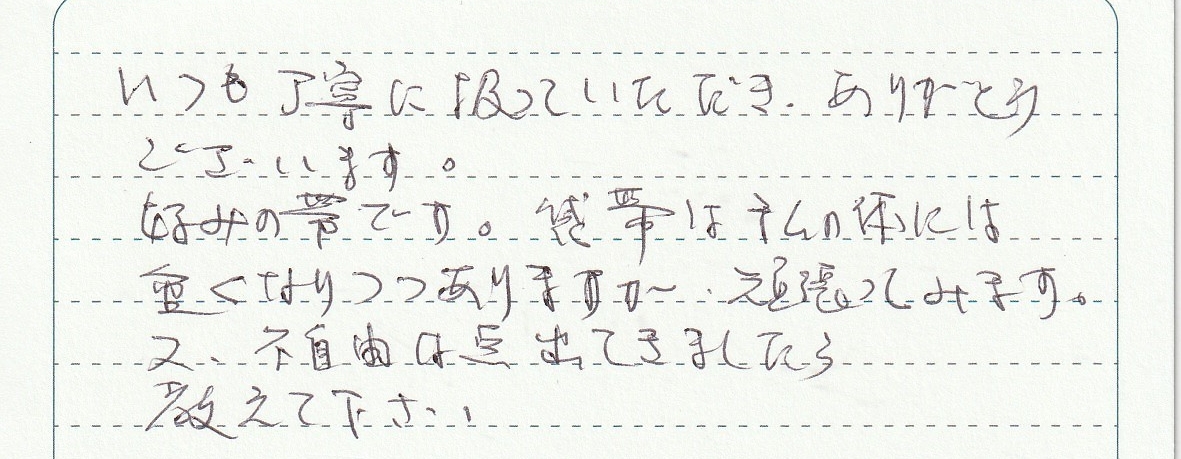 いつも丁寧に扱っていただき、ありがとう
ございます。
好みの帯です。袋帯は私の体には
重くなりつつありますが、頑張ってみます。
又、不自由な点出てきましたら
教えて下さい